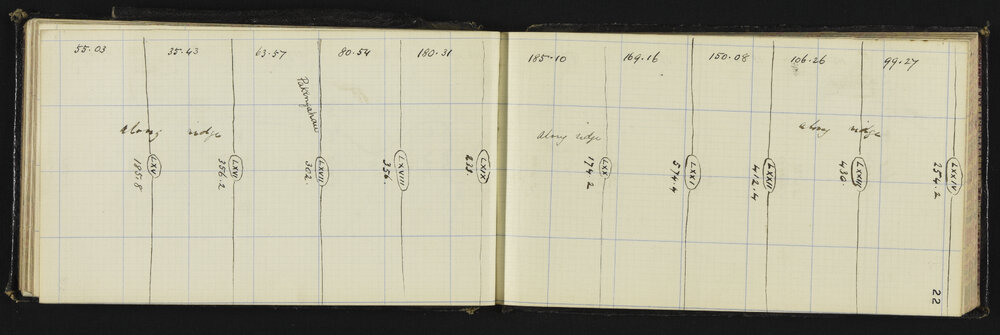 55.03 35.43 63.57 80.54 180.31
along ridge
LXV LXVI LXVII LXVIII LXIX
185.8 356.2 302. 356. 628.
185.10 169.16 150.08 106.26 99.27
along ridge along ridge
LXX LXXI LXXII LXXIII LXXIV
174.2 574.4 412.4 430. 254.2
22